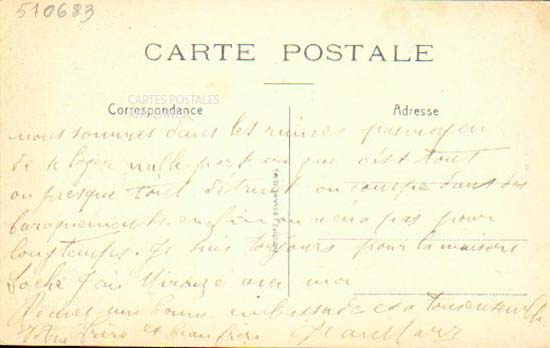 510683
CARTE POSTALE
CARTES POSTALES
Correspondance
Adresse
nous sommes dans les ruines pas moyen
de se loger nulle part vu que c'est tout
ou presque tout détruit on couche dans des
baraquements enfin on n'en a pas pour
longtemps. Je suis toujours pour la maison
avec moi
Recevez une bonne embrassade a tous ensemble
frère et beau frère Jean